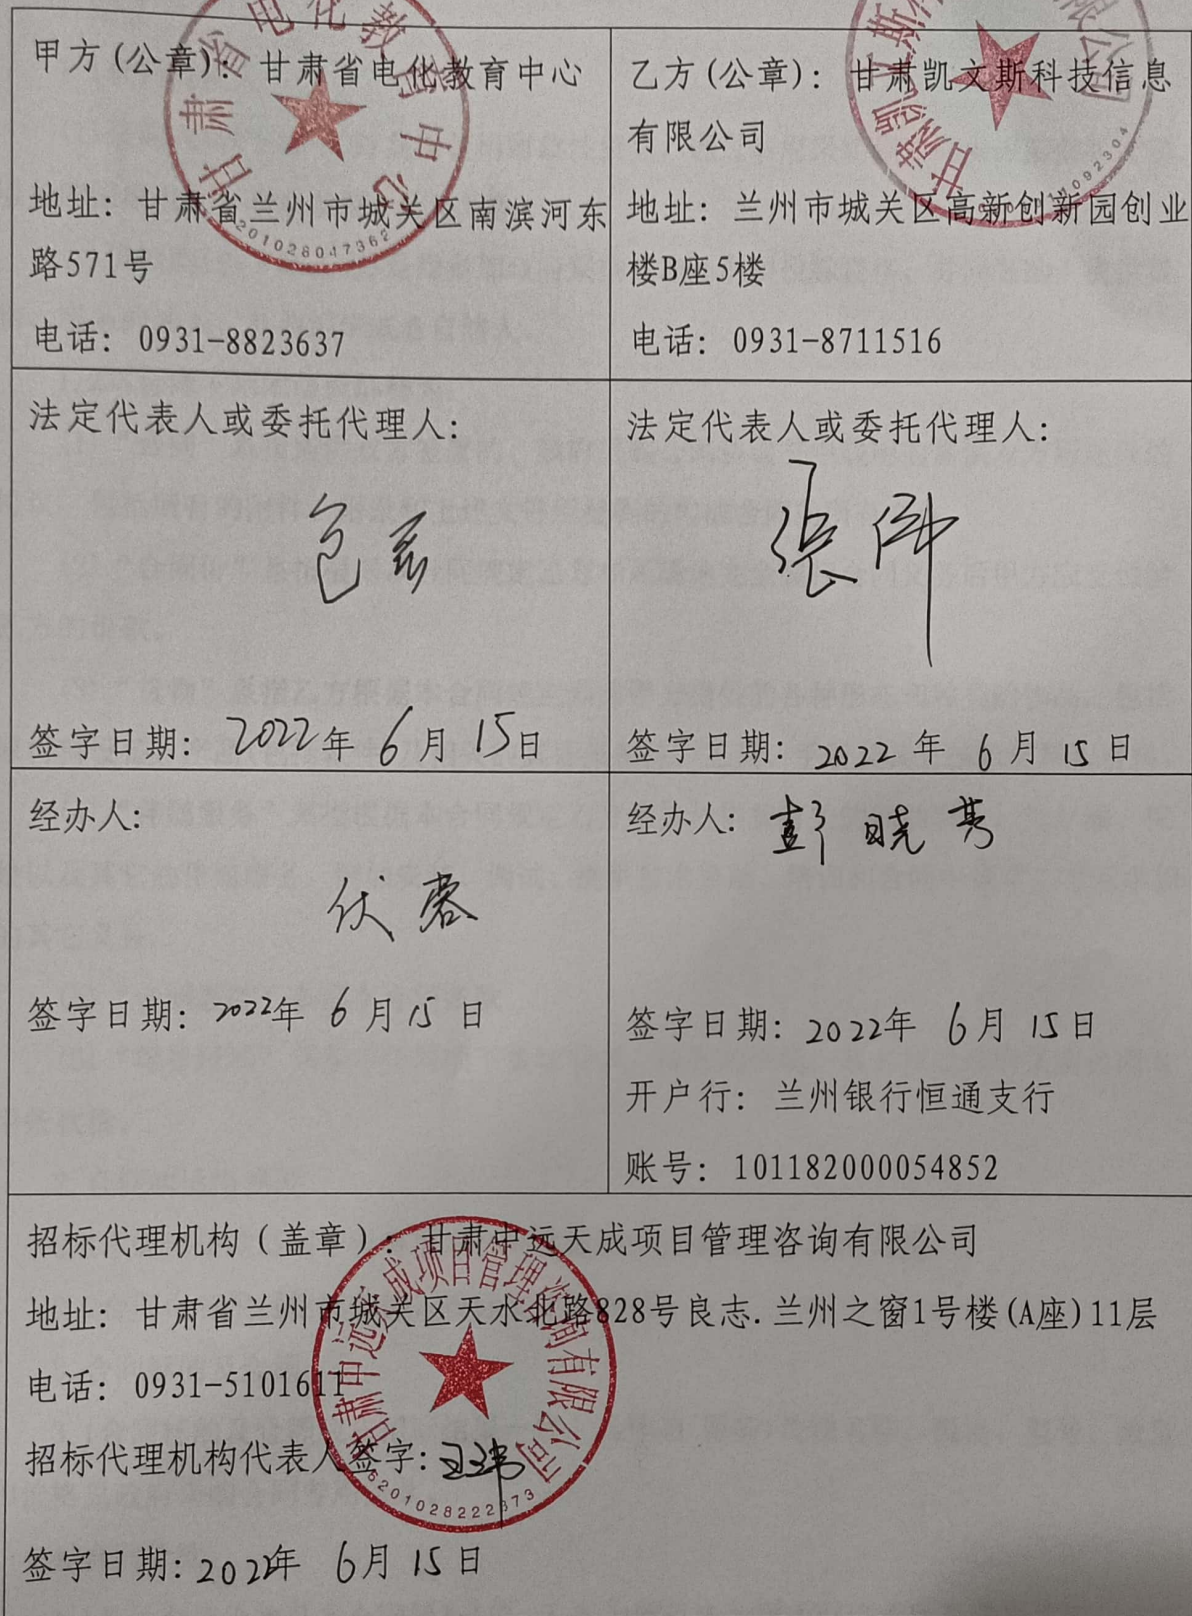 甲方(公章): 甘肃省电化教育中心
地址: 甘肃省兰州市城关区南滨河东
路571号
电话: 0931-8823637
乙方(公章): 甘肃凯文斯科技信息
有限公司
地址: 兰州市城关区高新创新园创业
楼B座5楼
电话: 0931-8711516
法定代表人或委托代理人:
签字日期: 2022年 6月 15日
法定代表人或委托代理人:
張伟
签字日期: 2022年 6月 15日
经办人:
伏蓉
签字日期: 2022年 6月15日
经办人: 彭晓芳
签字日期: 2022年 6月 15日
开户行: 兰州银行恒通支行
账号: 101182000054852
招标代理机构(盖章): 甘肃中远天成项目管理咨询有限公司
地址: 甘肃省兰州市城关区天水北路828号良志.兰州之窗1号楼(A座)11层
电话: 0931-5101611
招标代理机构代表人签字: 王玮
签字日期: 2022年 6月 15日
甘肃省电化教育中心
201028047362
甘肃中远天成项目管理咨询有限公司
6201028222873